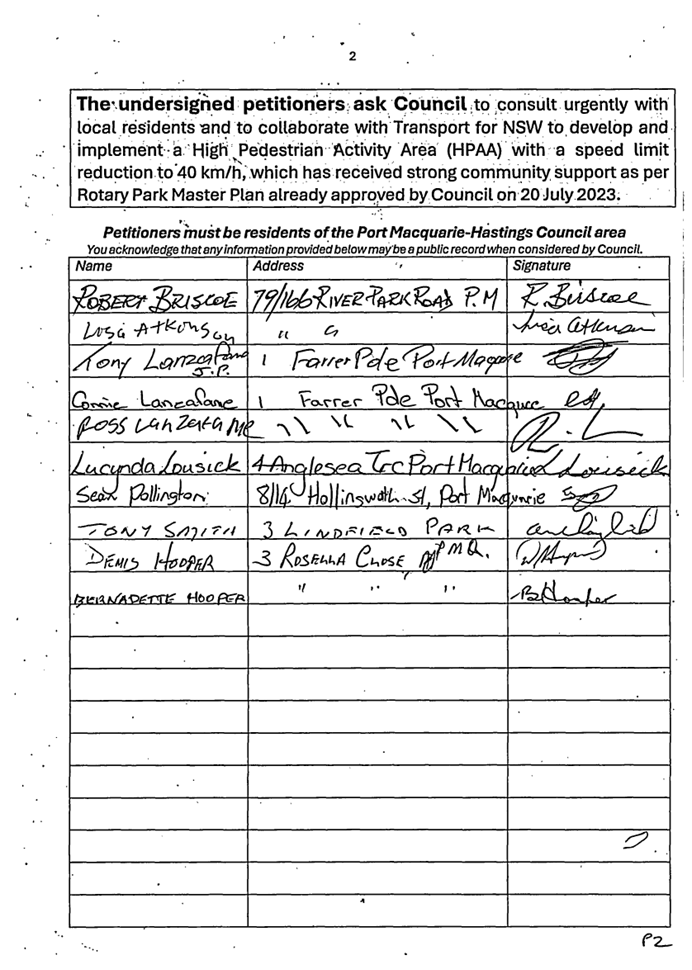 2
The undersigned petitioners ask Council to consult urgently with
local residents and to collaborate with Transport for NSW to develop and
implement a High Pedestrian Activity Area (HPAA) with a speed limit
reduction to 40 km/h, which has received strong community support as per
Rotary Park Master Plan already approved by Council on 20 July 2023.
Petitioners must be residents of the Port Macquarie-Hastings Council area
You acknowledge that any information provided below may be a public record when considered by Council.
Name Address Signature
ROBERT BRISCOE 79/166 RIVER PARK ROAD P.M R. Briscoe
Atkinson " "
Tony Lanzafame J.P. 1 Farrer Pde Port
Connie Lanzafame 1 Farrer Pde Port
ROSS LANZAFAME " " " "
Lucynda Lousick 4 Anglesea Trc Port Lousick
Sean Pollington 8/14 St, Port Macquarie
TONY SMITH 3 LINDFIELD PARK
DENIS HOOPER 3 ROSELLA CLOSE PT MQ.
BERNADETTE HOOPER " " " B Hooper
P2